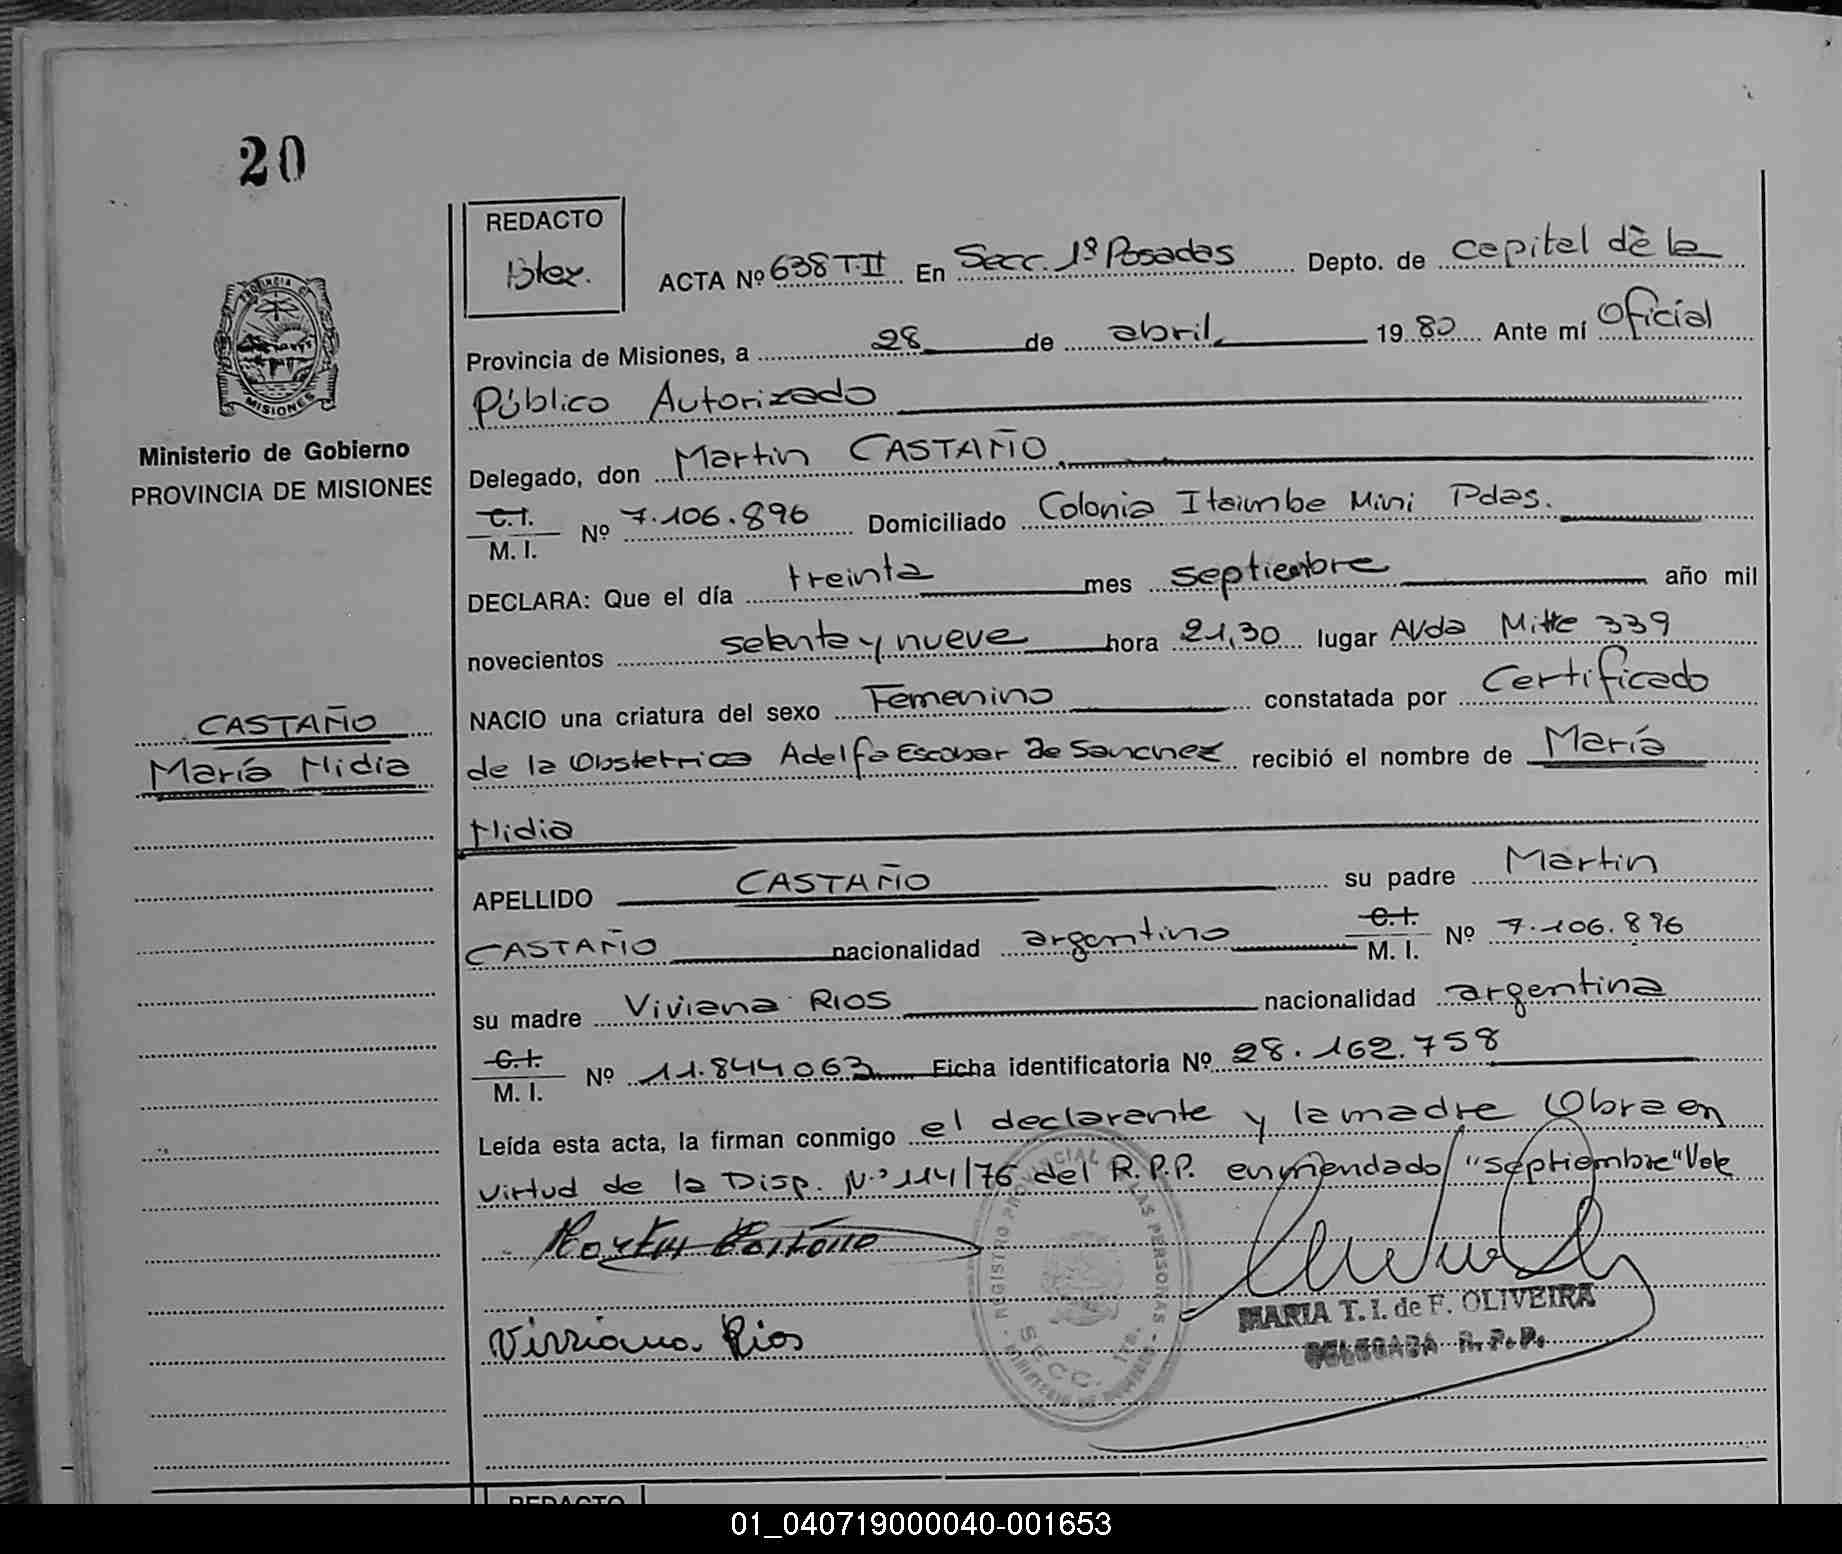 20
REDACTO
Blex.
ACTA Nº 638 T.II En Secc. 1ª Posadas Depto. de Capital de la
Provincia de Misiones, a 28 de abril 19 80 Ante mí Oficial
Público Autorizado
PROVINCIA DE
MISIONES
Ministerio de Gobierno
PROVINCIA DE MISIONES
Delegado, don Martin CASTAÑO
C.I.
M. I. Nº 7.106.896 Domiciliado Colonia Itaimbe Mini Pdas.
DECLARA: Que el día treinta mes septiembre año mil
novecientos setenta y nueve hora 21,30 lugar Avda Mitre 339
NACIO una criatura del sexo Femenino constatada por Certificado
CASTAÑO
María Nidia
de la Obstetrica Adelfa Escobar de Sanchez recibió el nombre de María
Nidia
APELLIDO CASTAÑO su padre Martin
CASTAÑO nacionalidad argentino C.I.
M. I. Nº 7.106.896
su madre Viviana RIOS nacionalidad argentina
C.I.
M. I. Nº 11.844063 Ficha identificatoria Nº 28.162.758
Leída esta acta, la firman conmigo el declarante y la madre Obra en
virtud de la Disp. N.º 114/76 del R.P.P. enmendado "septiembre" Vale
Martin Castaño
REGISTRO PROVINCIAL DE LAS PERSONAS
SECC. 1ra.
MINISTERIO DE GOBIERNO
MARIA T. I. de F. OLIVEIRA
DELEGADA R.P.P.
Viviana Rios
REDACTO
01_040719000040-001653